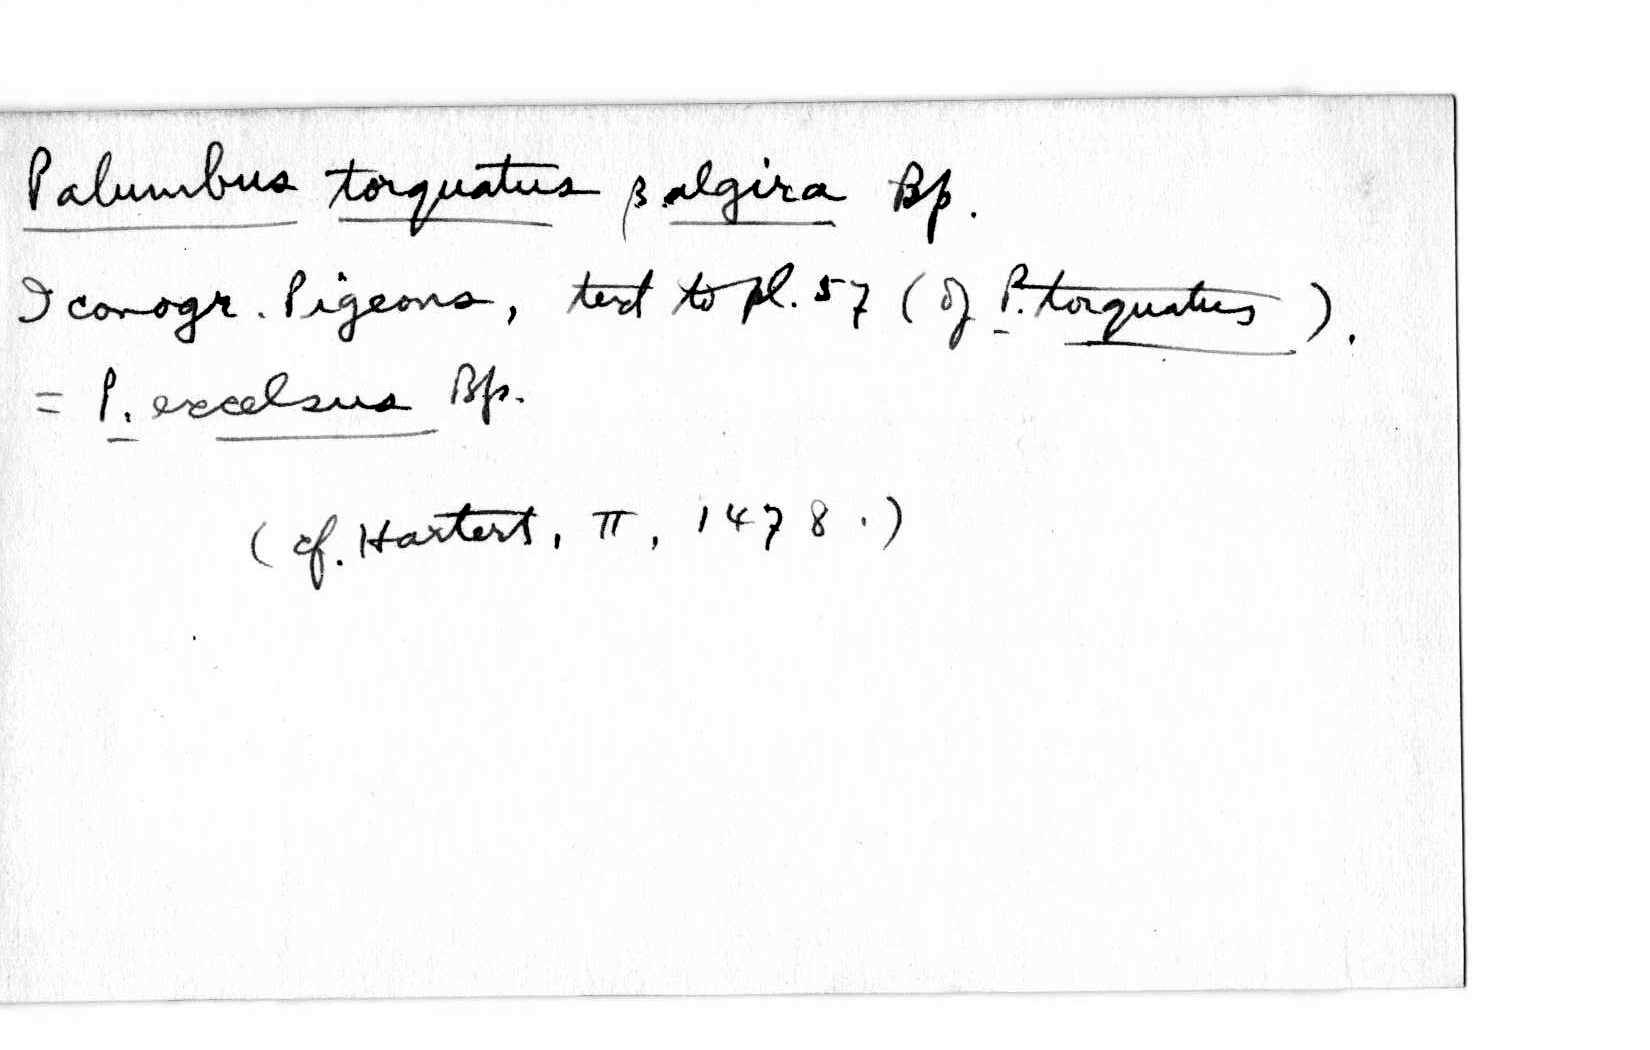 Palumbus torquatus β. algira Bp.
Iconogr. Pigeons, text to pl. 57 (of P. torquatus).
= P. excelsus Bp.
(cf. Hartert, II, 1478.)